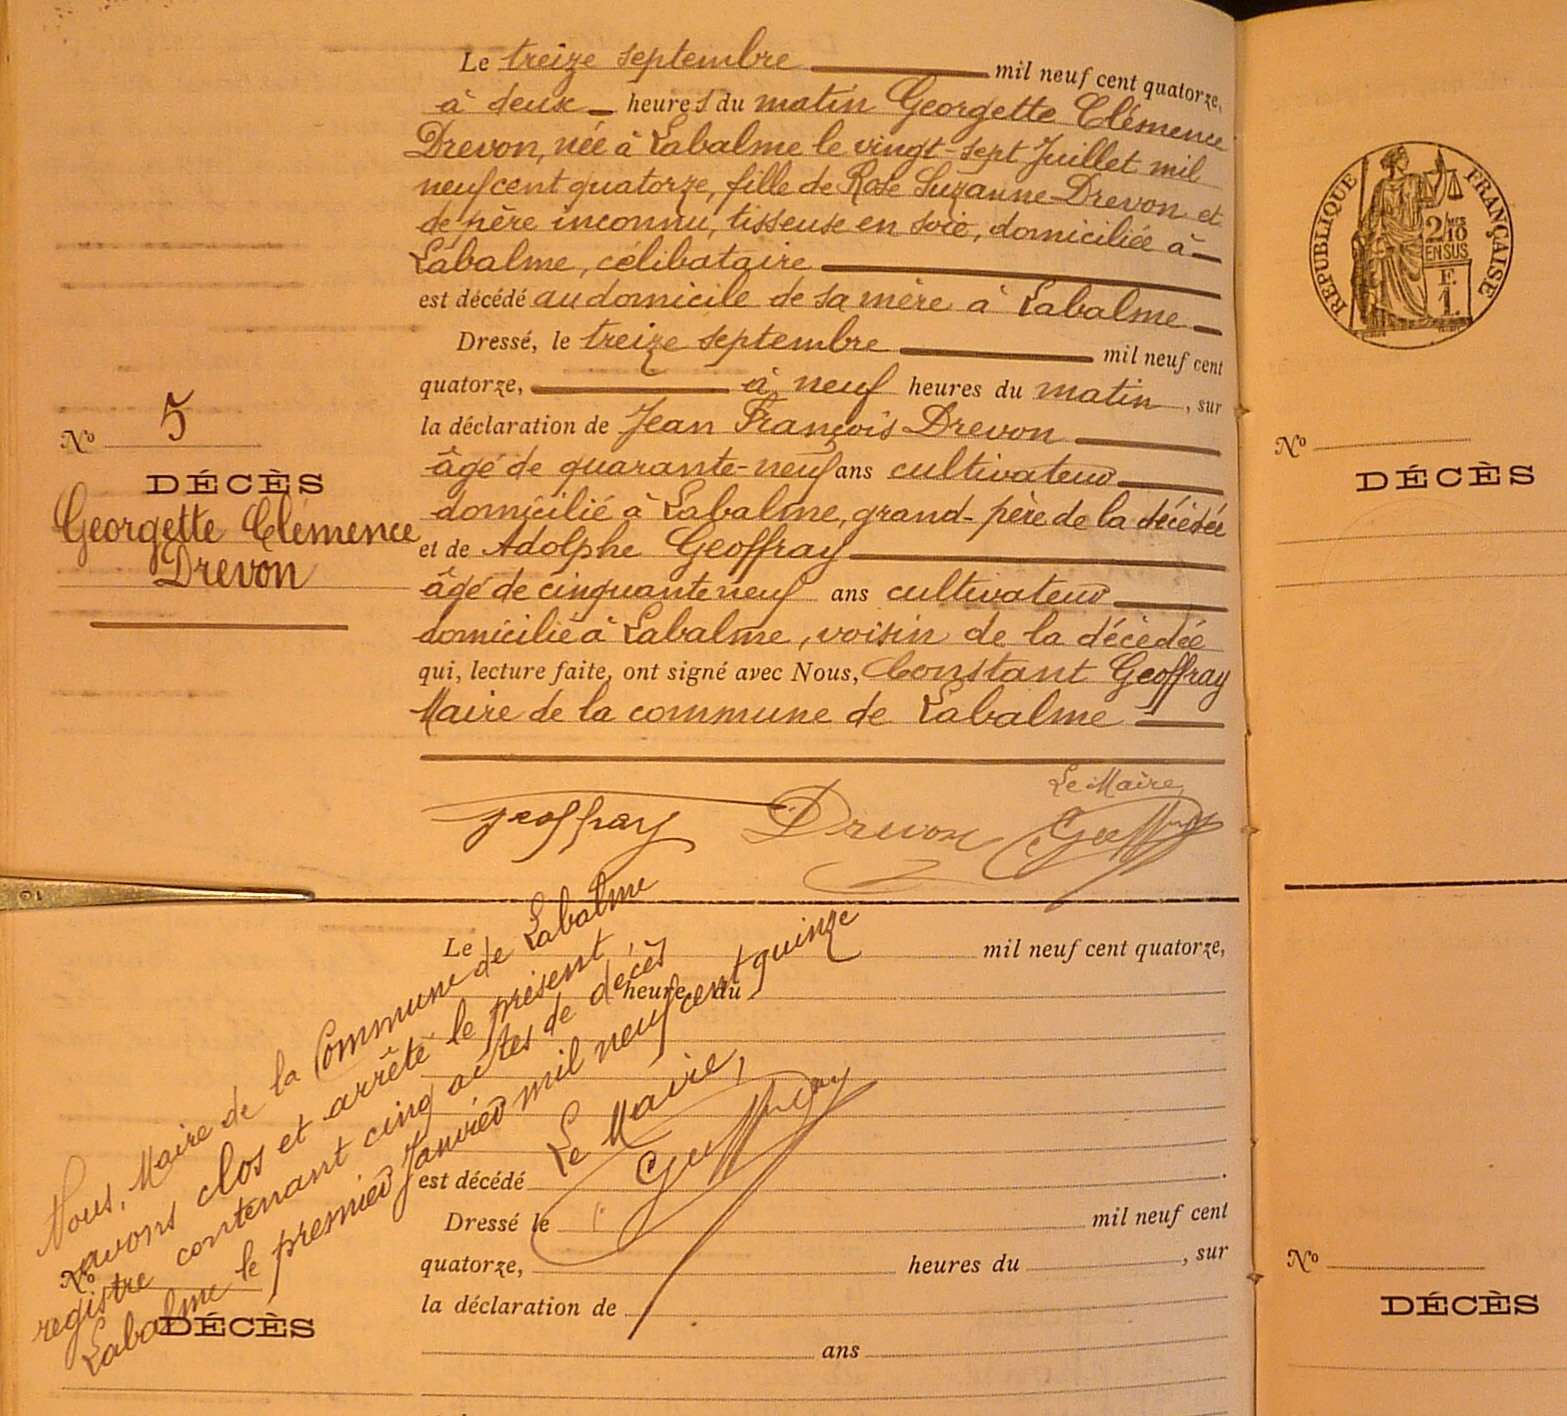 Le treize septembre mil neuf cent quatorze,
à deux heures du matin Georgette Clémence
Drevon, née à Labalme le vingt-sept Juillet mil
neuf cent quatorze, fille de Rose Suzanne Drevon et
de père inconnu, tisseuse en soie, domiciliée à
Labalme, célibataire
est décédé au domicile de sa mère à Labalme
Dressé, le treize septembre mil neuf cent
quatorze, à neuf heures du matin, sur
la déclaration de Jean François Drevon
âgé de quarante-neuf ans cultivateur
domicilié à Labalme, grand-père de la décédée
et de Adolphe Geoffray
âgé de cinquante neuf ans cultivateur
domicilié à Labalme, voisin de la décédée
qui, lecture faite, ont signé avec Nous, Constant Geoffray
Maire de la commune de Labalme
Le Maire,
Geoffray Drevon Geoffray
No 5
DÉCÈS
Georgette Clémence
Drevon
Le mil neuf cent quatorze,
heure du
est décédé .
Dressé le mil neuf cent
quatorze, heures du , sur
la déclaration de
ans
No
DÉCÈS
Nous, Maire de la Commune de Labalme
avons clos et arrêté le présent
registre contenant cinq actes de décès
Labalme le premier Janvier mil neuf cent quinze
Le Maire,
Geoffray
RÉPUBLIQUE FRANÇAISE
2/10
EN SUS
F.
1.
No
DÉCÈS
No
DÉCÈS